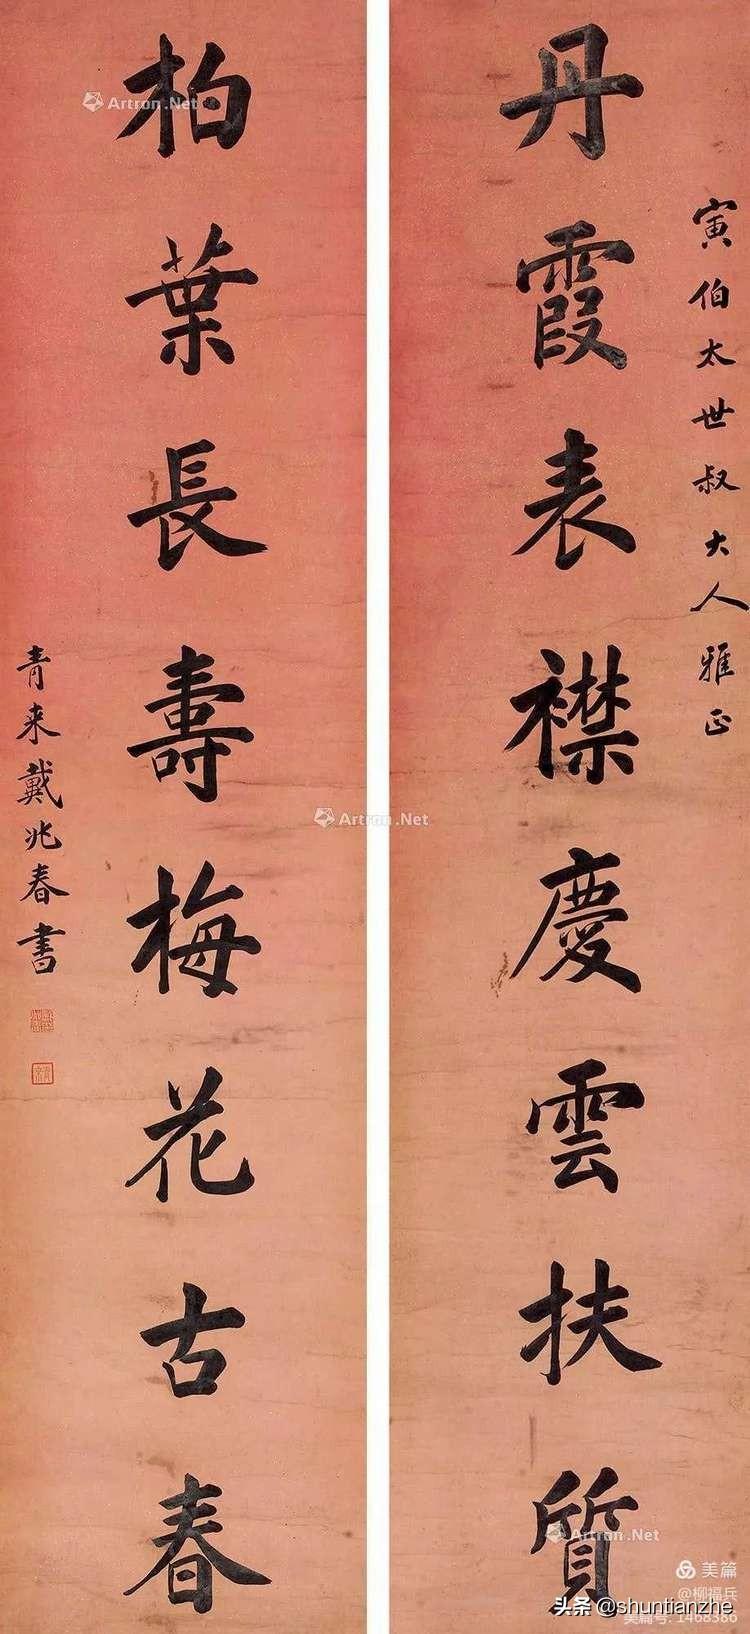 寅伯太世叔大人雅正
丹霞表襟慶雲扶質
柏葉長壽梅花古春
青来戴兆春書
Artron.Net
Artron.Net
Artron.Net
美篇
@柳福兵
美篇号: 1468386
头条 @shuntianzhe